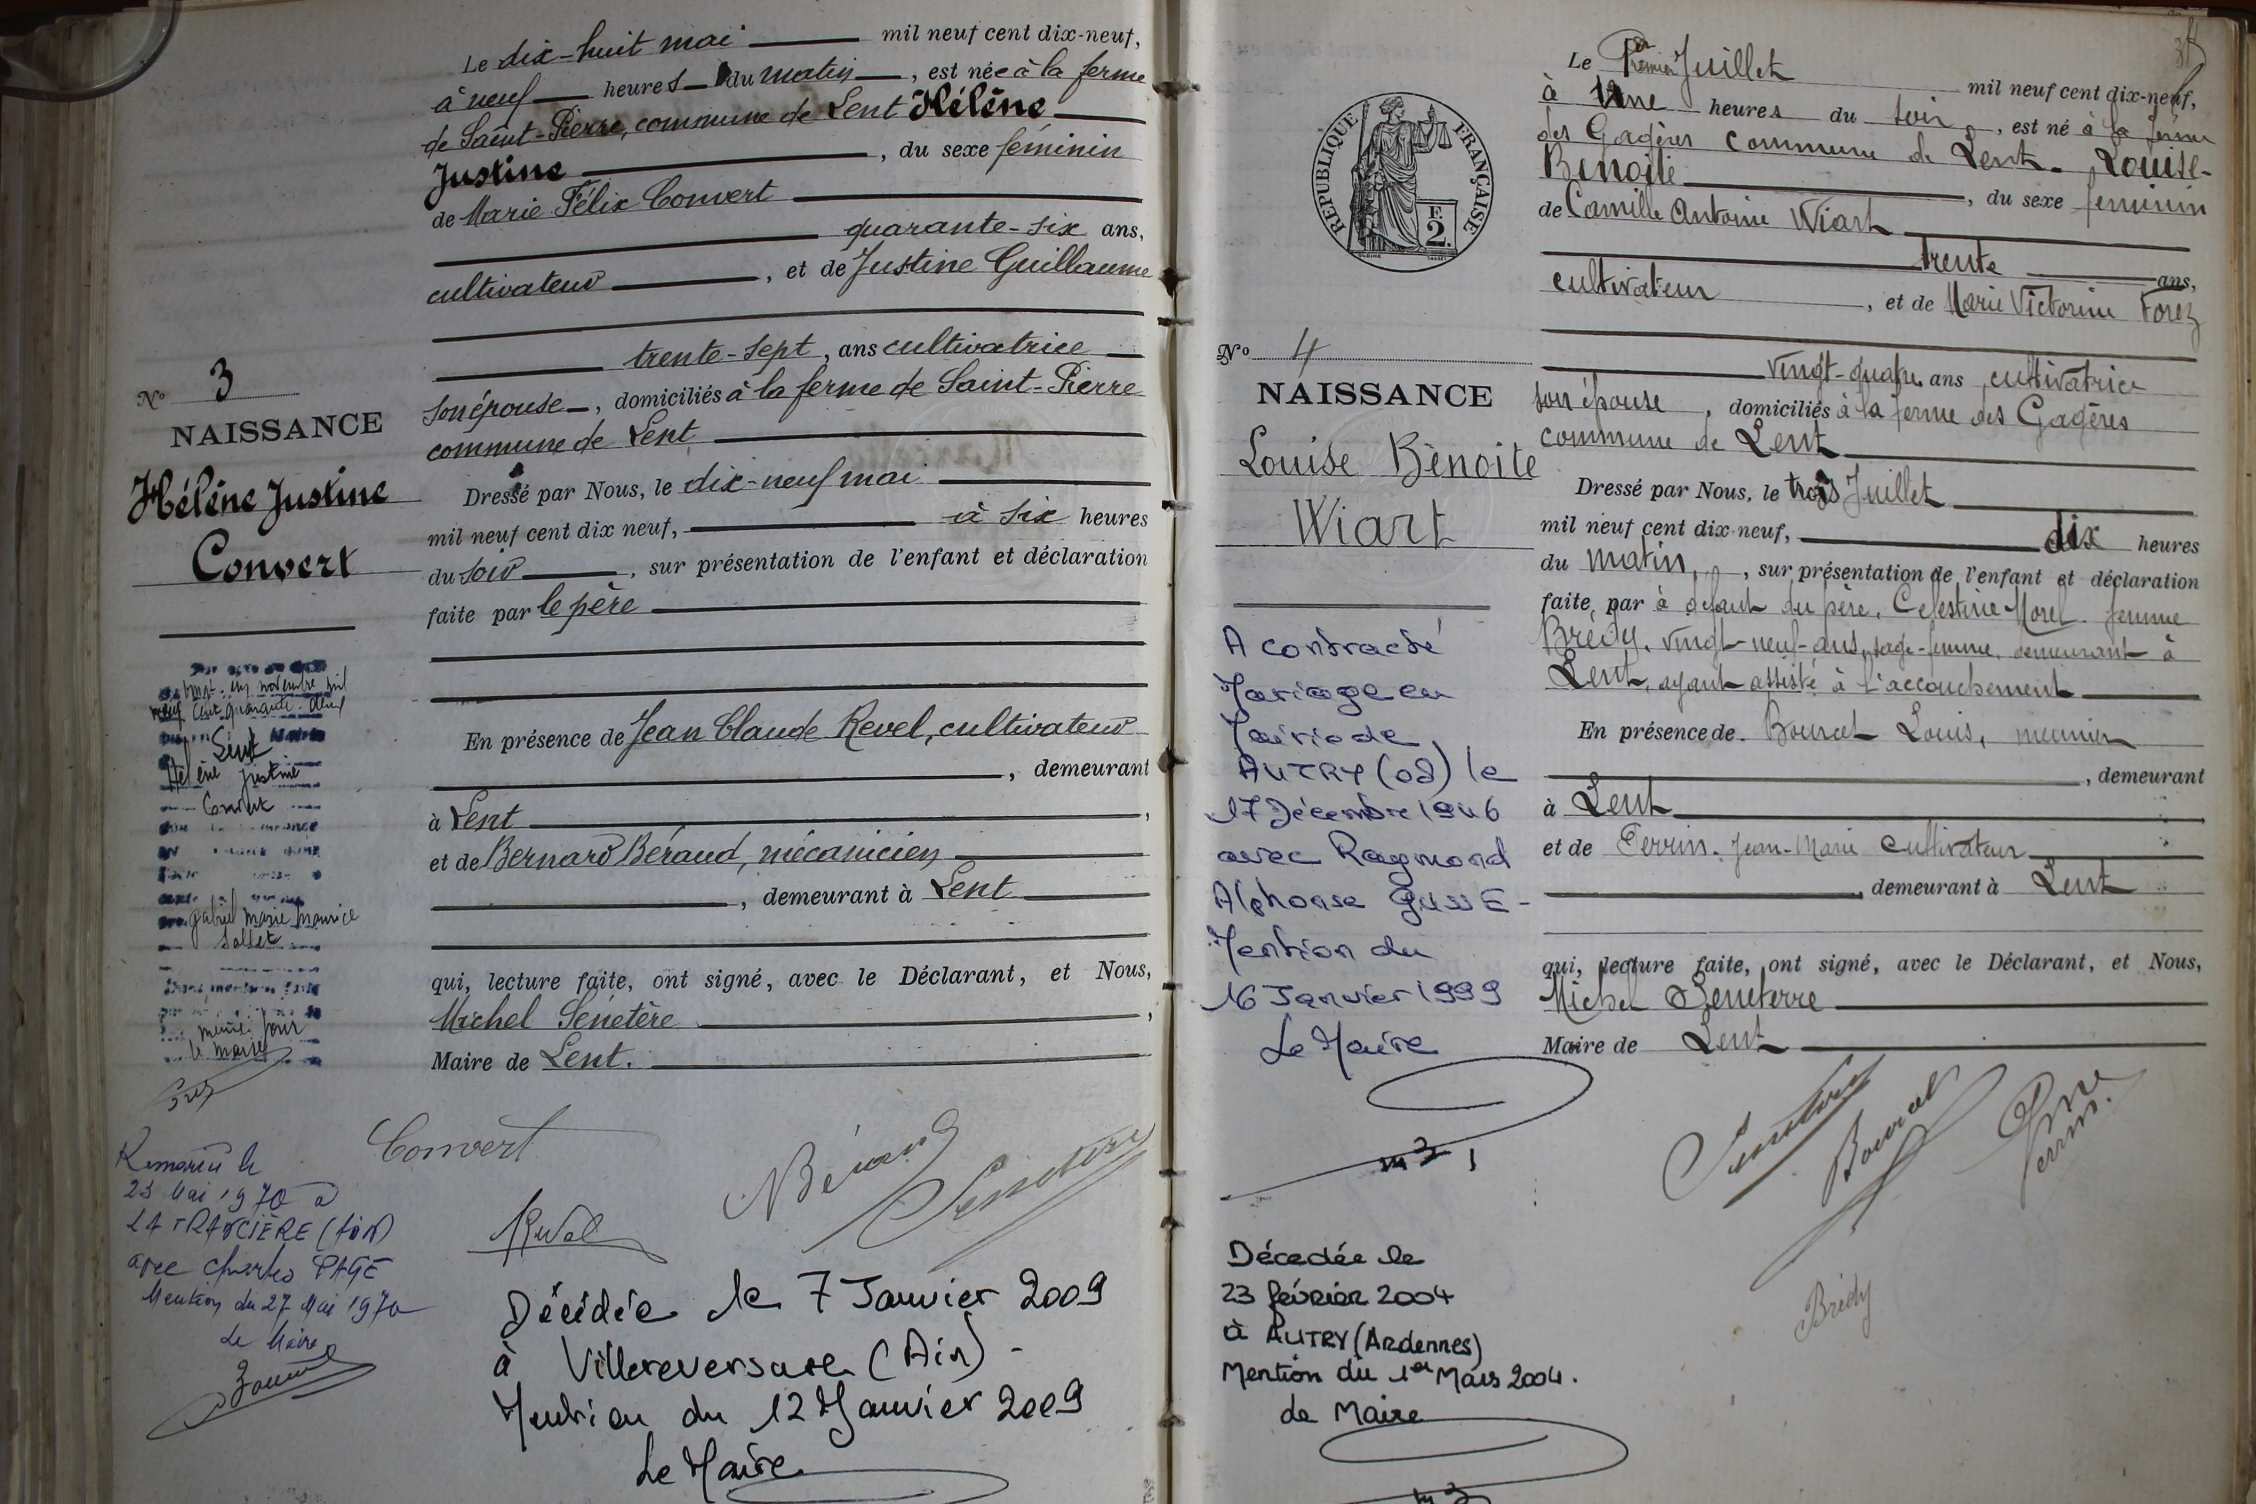 Le dix-huit mai mil neuf cent dix-neuf,
à neuf heures du matin, est née à la ferme
de Saint-Pierre, commune de Lent Hélène
Justine, du sexe féminin
de Marie Félix Convert
quarante-six ans,
cultivateur, et de Justine Guillaume
trente-sept, ans cultivatrice
son épouse, domiciliés à la ferme de Saint-Pierre
commune de Lent
Dressé par Nous, le dix-neuf mai
mil neuf cent dix neuf, à six heures
du soir, sur présentation de l'enfant et déclaration
faite par le père
En présence de Jean Claude Revel, cultivateur
, demeurant
à Lent,
et de Bernard Béraud, mécanicien
, demeurant à Lent
qui, lecture faite, ont signé, avec le Déclarant, et Nous,
Michel Sénétère,
Maire de Lent.
No 3
NAISSANCE
Hélène Justine
Convert
vingt-cinq novembre mil
neuf cent quarante-deux
Lent
Hélène Justine
Convert
gabriel Marie Maurice
Sallet
même jour
le maire
Convert
Revel
Béraud
Remariée le
23 Mai 1970 à
LA TRANCIÈRE (Ain)
avec Charles PAGE
Mention du 27 Mai 1970
Le Maire
Décédée le 7 Janvier 2009
à Villereversure (Ain) -
Mention du 12 Janvier 2009
Le Maire
Le Premier Juillet mil neuf cent dix-neuf,
à Une heures du soir, est né à la ferme
des Gagères commune de Lent. Louise-
Benoite, du sexe feminin
de Camille Antoine Wiart
trente ans,
cultivateur, et de Marie Victorine Forez
vingt-quatre ans cultivatrice
son épouse, domiciliés à la ferme des Gagères
commune de Lent
Dressé par Nous, le trois Juillet
mil neuf cent dix-neuf, dix heures
du matin, sur présentation de l'enfant et déclaration
faite par à défaut du père, Celestine Morel femme
Brédy, vingt-neuf-ans, sage-femme, demeurant à
Lent, ayant assisté à l'accouchement
En présence de Bourcet Louis, meunier
, demeurant
à Lent
et de Perrin Jean-Marie cultivateur
, demeurant à Lent
qui, lecture faite, ont signé, avec le Déclarant, et Nous,
Michel Seneterre
Maire de Lent
RÉPUBLIQUE FRANÇAISE
F.
2.
No 4
NAISSANCE
Louise Bènoite
Wiart
A contracté
Mariage en
Mairie de
AUTRY (08) le
17 Décembre 1946
avec Raymond
Alphonse GUSSE -
Mention du
16 Janvier 1999
Le Maire
Bourcet
Perrin.
Brédy
Décedée le
23 février 2004
à AUTRY (Ardennes)
Mention du 1er Mars 2004.
de Maire